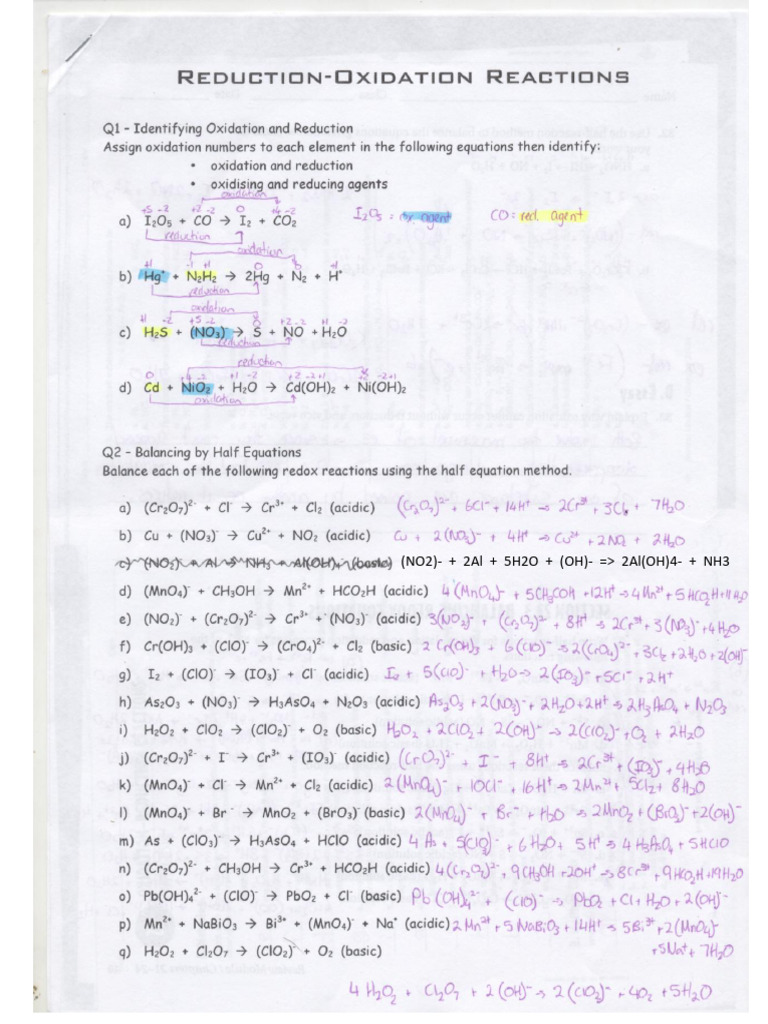 REDUCTION-OXIDATION REACTIONS
Q1 – Identifying Oxidation and Reduction
Assign oxidation numbers to each element in the following equations then identify:
• oxidation and reduction
• oxidising and reducing agents
oxidation
+5 -2 +2 -2 0 +4 -2
a) I₂O₅ + CO → I₂ + CO₂ I₂O₅ = ox. agent CO = red. agent
reduction
oxidation
b) Hg⁺ + N₂H₂ → 2Hg + N₂ + H⁺
reduction
oxidation
c) H₂S + (NO₃)⁻ → S + NO + H₂O
reduction
reduction
d) Cd + NiO₂ + H₂O → Cd(OH)₂ + Ni(OH)₂
oxidation
Q2 – Balancing by Half Equations
Balance each of the following redox reactions using the half equation method.
a) (Cr₂O₇)²⁻ + Cl⁻ → Cr³⁺ + Cl₂ (acidic) (Cr₂O₇)²⁻ + 6Cl⁻ + 14H⁺ → 2Cr³⁺ + 3Cl₂ + 7H₂O
b) Cu + (NO₃)⁻ → Cu²⁺ + NO₂ (acidic) Cu + 2(NO₃)⁻ + 4H⁺ → Cu²⁺ + 2NO₂ + 2H₂O
c) (NO₂)⁻ + Al → NH₃ + Al(OH)₄⁻ (basic) (NO2)- + 2Al + 5H2O + (OH)- => 2Al(OH)4- + NH3
d) (MnO₄)⁻ + CH₃OH → Mn²⁺ + HCO₂H (acidic) 4(MnO₄)⁻ + 5CH₃OH + 12H⁺ → 4Mn²⁺ + 5HCO₂H + 11H₂O
e) (NO₂)⁻ + (Cr₂O₇)²⁻ → Cr³⁺ + (NO₃)⁻ (acidic) 3(NO₂)⁻ + (Cr₂O₇)²⁻ + 8H⁺ → 2Cr³⁺ + 3(NO₃)⁻ + 4H₂O
f) Cr(OH)₃ + (ClO)⁻ → (CrO₄)²⁻ + Cl₂ (basic) 2Cr(OH)₃ + 6(ClO)⁻ → 2(CrO₄)²⁻ + 3Cl₂ + 2H₂O + 2(OH)⁻
g) I₂ + (ClO)⁻ → (IO₃)⁻ + Cl⁻ (acidic) I₂ + 5(ClO)⁻ + H₂O → 2(IO₃)⁻ + 5Cl⁻ + 2H⁺
h) As₂O₃ + (NO₃)⁻ → H₃AsO₄ + N₂O₃ (acidic) As₂O₃ + 2(NO₃)⁻ + 2H₂O + 2H⁺ → 2H₃AsO₄ + N₂O₃
i) H₂O₂ + ClO₂ → (ClO₂)⁻ + O₂ (basic) H₂O₂ + 2ClO₂ + 2(OH)⁻ → 2(ClO₂)⁻ + O₂ + 2H₂O
j) (Cr₂O₇)²⁻ + I⁻ → Cr³⁺ + (IO₃)⁻ (acidic) (CrO₇)²⁻ + I⁻ + 8H⁺ → 2Cr³⁺ + (IO₃)⁻ + 4H₂O
k) (MnO₄)⁻ + Cl⁻ → Mn²⁺ + Cl₂ (acidic) 2(MnO₄)⁻ + 10Cl⁻ + 16H⁺ → 2Mn²⁺ + 5Cl₂ + 8H₂O
l) (MnO₄)⁻ + Br⁻ → MnO₂ + (BrO₃)⁻ (basic) 2(MnO₄)⁻ + Br⁻ + H₂O → 2MnO₂ + (BrO₃)⁻ + 2(OH)⁻
m) As + (ClO₃)⁻ → H₃AsO₄ + HClO (acidic) 4As + 5(ClO₃)⁻ + 6H₂O + 5H⁺ → 4H₃AsO₄ + 5HClO
n) (Cr₂O₇)²⁻ + CH₃OH → Cr³⁺ + HCO₂H (acidic) 4(Cr₂O₇)²⁻ + 9CH₃OH + 20H⁺ → 8Cr³⁺ + 9HCO₂H + 19H₂O
o) Pb(OH)₄²⁻ + (ClO)⁻ → PbO₂ + Cl⁻ (basic) Pb(OH)₄²⁻ + (ClO)⁻ → PbO₂ + Cl + H₂O + 2(OH)⁻
p) Mn²⁺ + NaBiO₃ → Bi³⁺ + (MnO₄)⁻ + Na⁺ (acidic) 2Mn²⁺ + 5NaBiO₃ + 14H⁺ → 5Bi³⁺ + 2(MnO₄)⁻
+ 5Na⁺ + 7H₂O
q) H₂O₂ + Cl₂O₇ → (ClO₂)⁻ + O₂ (basic)
4H₂O₂ + Cl₂O₇ + 2(OH)⁻ → 2(ClO₂)⁻ + 4O₂ + 5H₂O